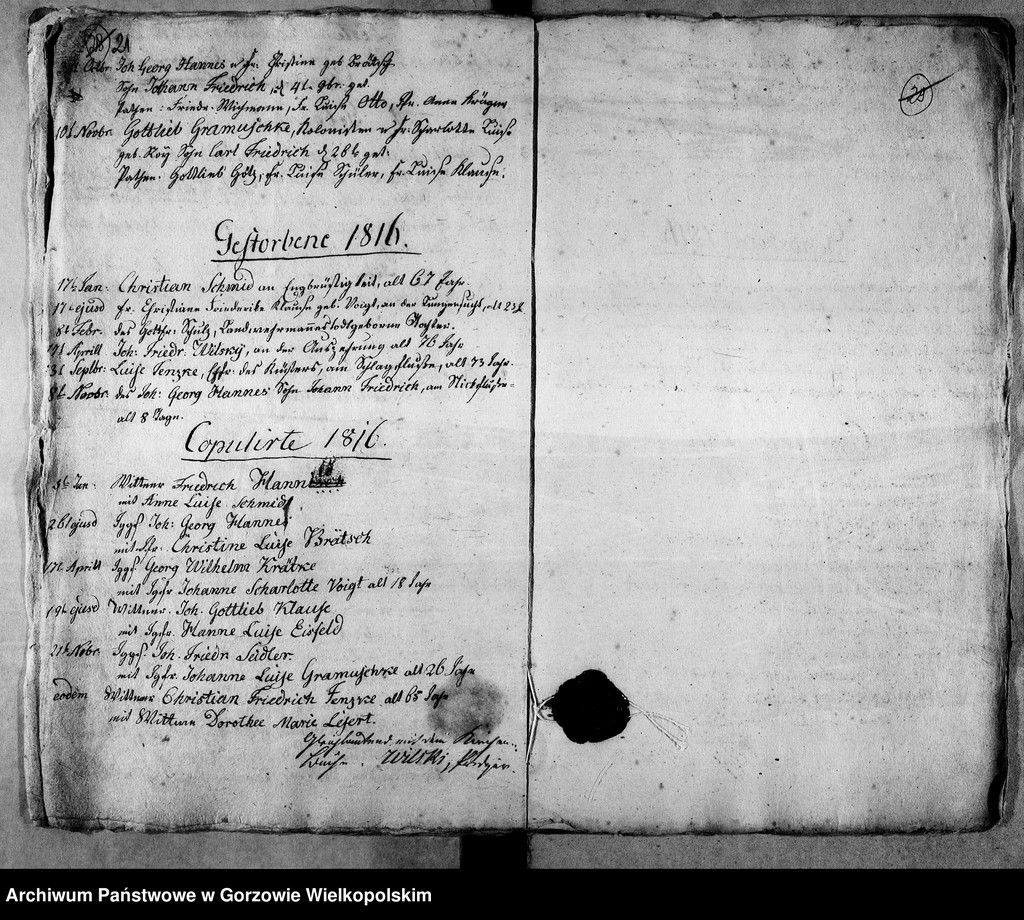 28 21
Octbr. Joh Georg Hannes u fr. Christine geb Brätsch
Sohn Johann Friedrich, d 4t gbr. get.
Pathen: Friedr. Wichmann, fr. Luise Otto, Anna Krüger
10t Novbr. Gottlieb Gramuschke, Kolonisten u fr. Scharlotte Luise
geb. Roÿ Sohn Carl Friedrich d 26t get:
Pathen: Gottlieb Götz, fr. Luise Schüler, fr. Luise Klause.
28
Gestorbene 1816.
17t Jan: Christian Schmid an Engbrüstigkeit, alt 67 Jahr.
17t ejusd fr. Christiane Friederike Klause geb. Voigt, an der Lungensucht, alt 23
8t Febr. des Gottfr: Schulz, Landwehrmannes todtgeborne Tochter.
Aprill Joh: Friedr: Wilsky, an der Auszehrung alt 76 Jahr
Septbr: Luise Fenzke, des Küsters, am Schlagflusse, alt 73 Jahr.
8t Novbr. des Joh: Georg Hannes Sohn Johann Friedrich, am Stickflusse
alt 8 Tage.
Copulirte 1816.
Jan: Wittwer Friedrich Hannes
mit Anne Luise Schmidt
26t ejusd Jggs Joh: Georg Hannes
mit Jfr. Christine Luise Brätsch
17t Aprill Jggs Georg Wilhelm Krätke
mit Jgfr Johanne Scharlotte Voigt alt 18 Jahr
19t ejusd Wittwer. Joh. Gottlieb Klause
mit Jgfr. Hanne Luise Eisfeld
21t Nobr. Jggs. Joh. Friedr Sadler.
mit Jgfr. Johanne Luise Gramuschke alt 26 Jahr
eodem Wittwer Christian Friedrich Fenzke alt 65 Jahr
mit Wittwe Dorothee Marie Lesert.
Gleichlautend mit dem Kirchen-
Buche. Wilski, Prediger.
Archiwum Państwowe w Gorzowie Wielkopolskim